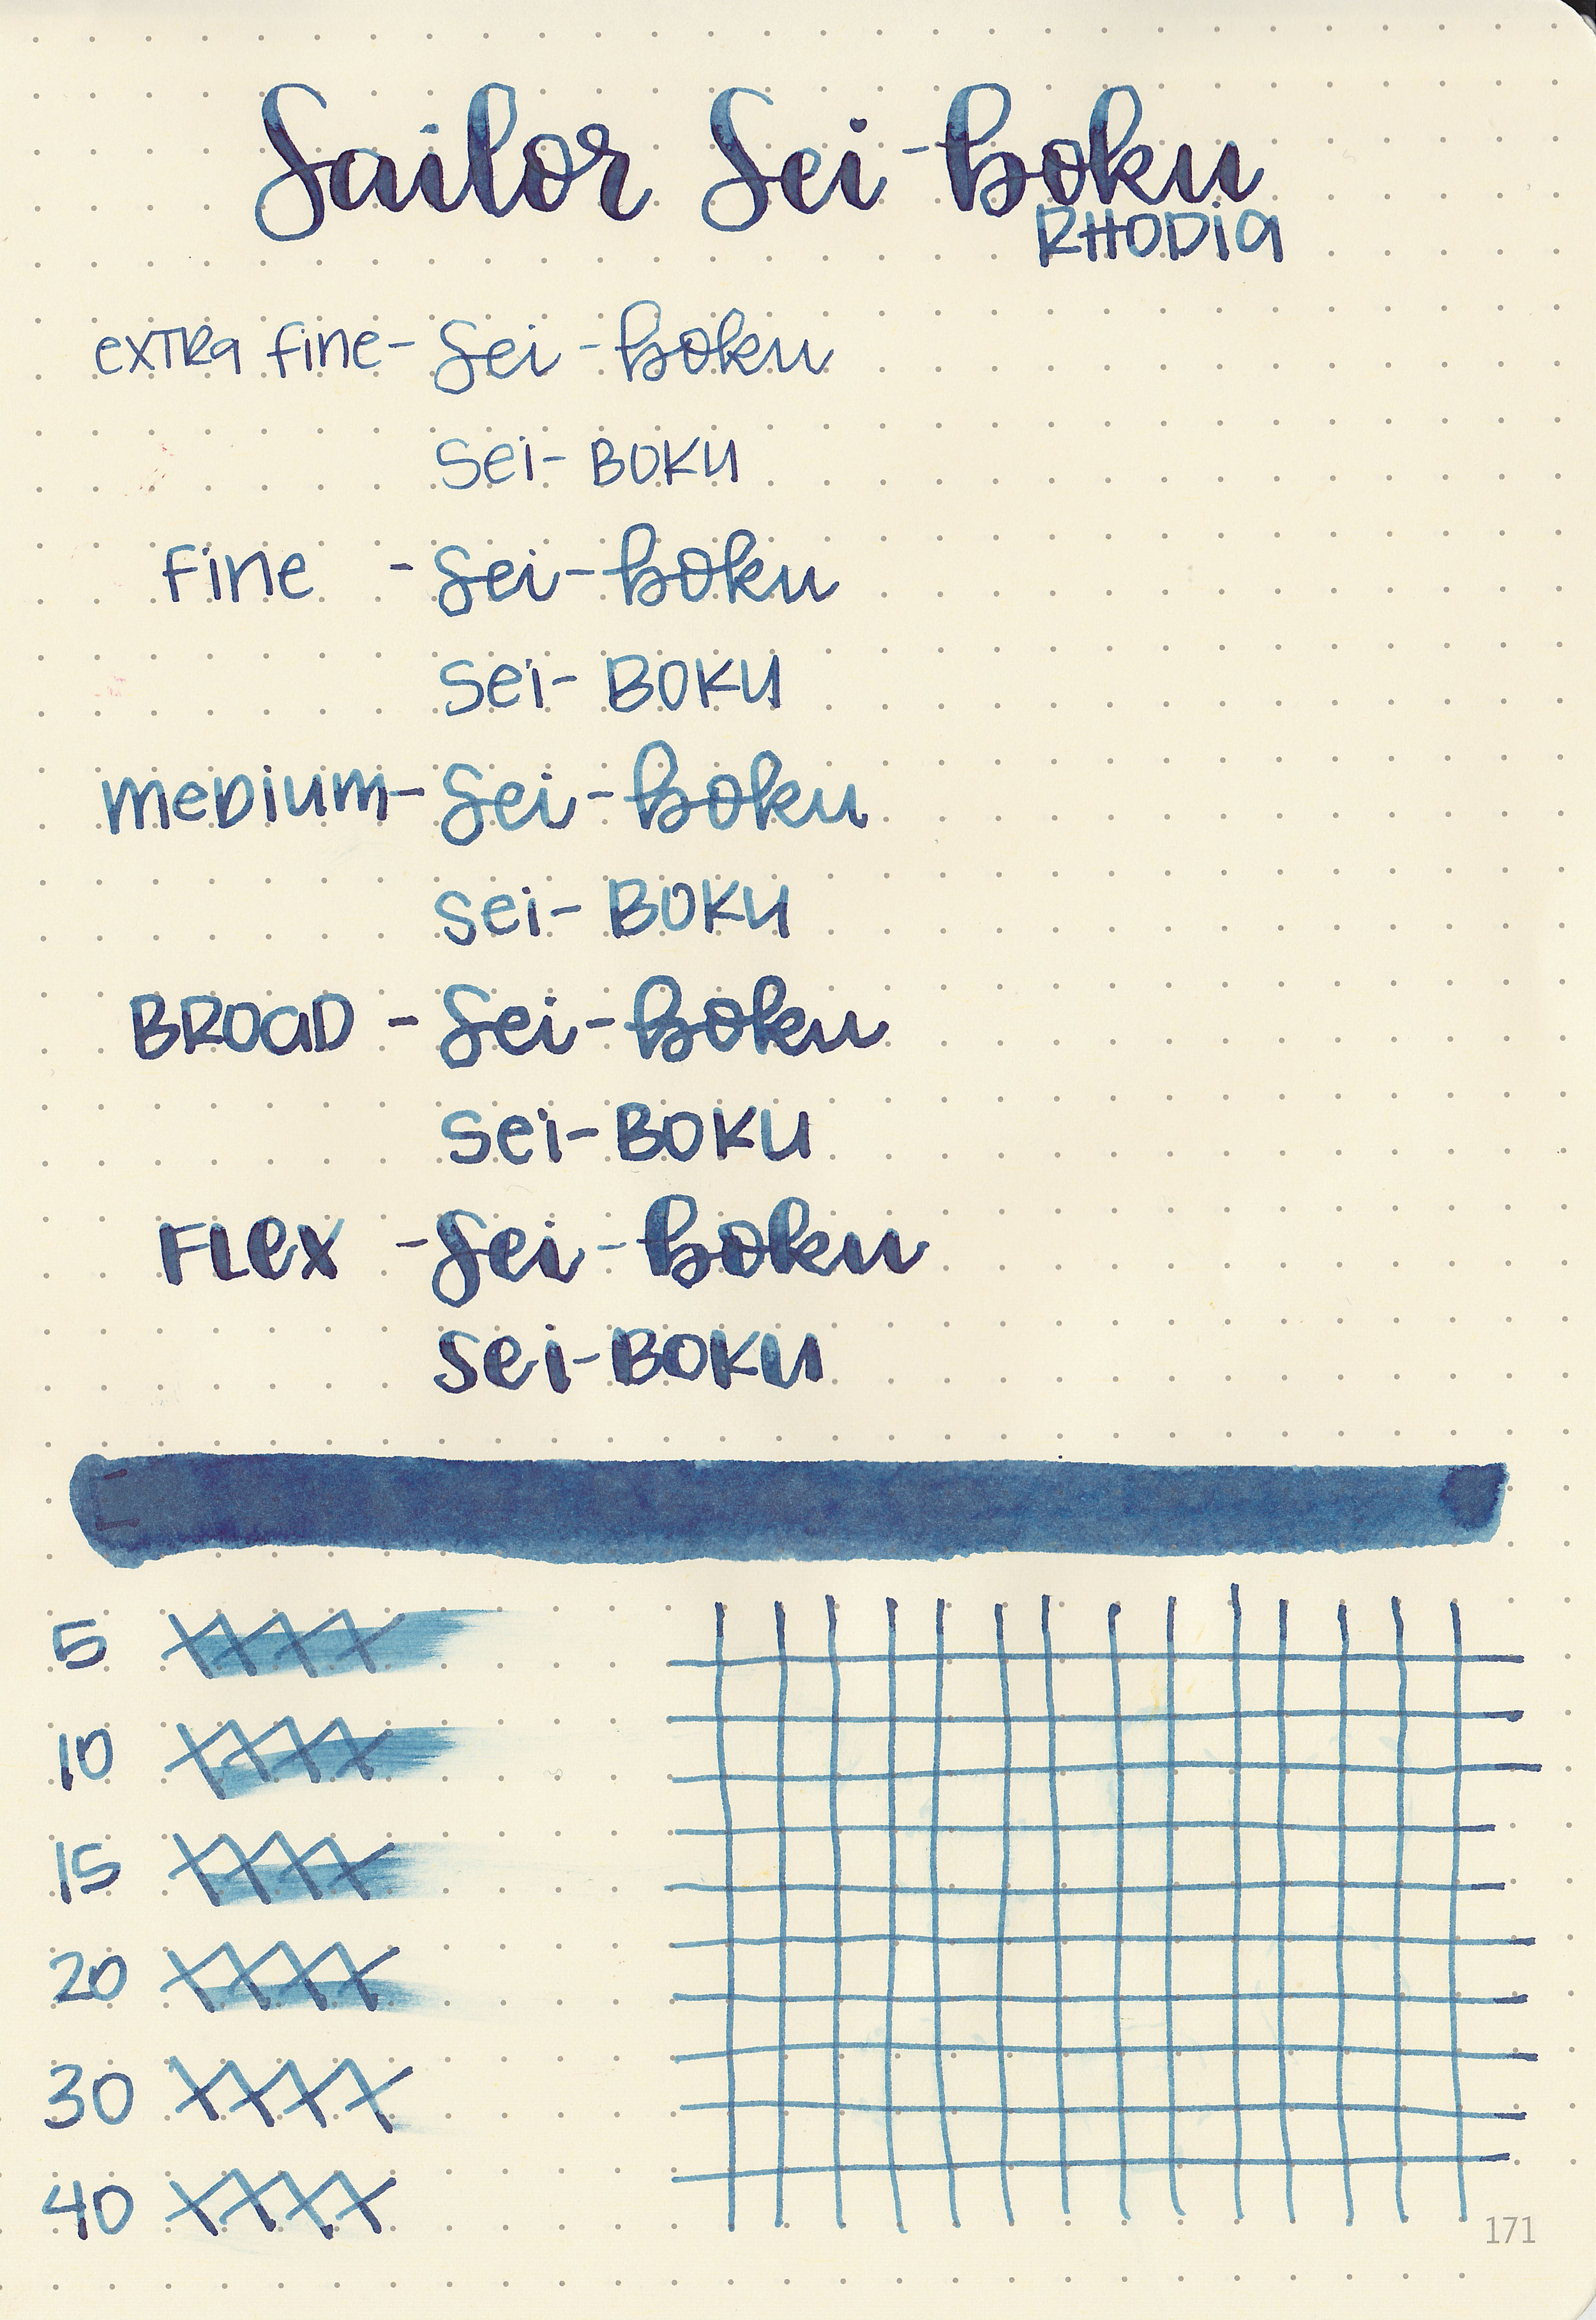 Sailor Sei-boku
RHODIA
extra fine - Sei-boku
Sei-BOKU
fine - Sei-boku
Sei-BOKU
medium - Sei-boku
Sei-BOKU
BROAD - Sei-boku
Sei-BOKU
FLex - Sei-boku
Sei-BOKU
5
10
15
20
30
40
171